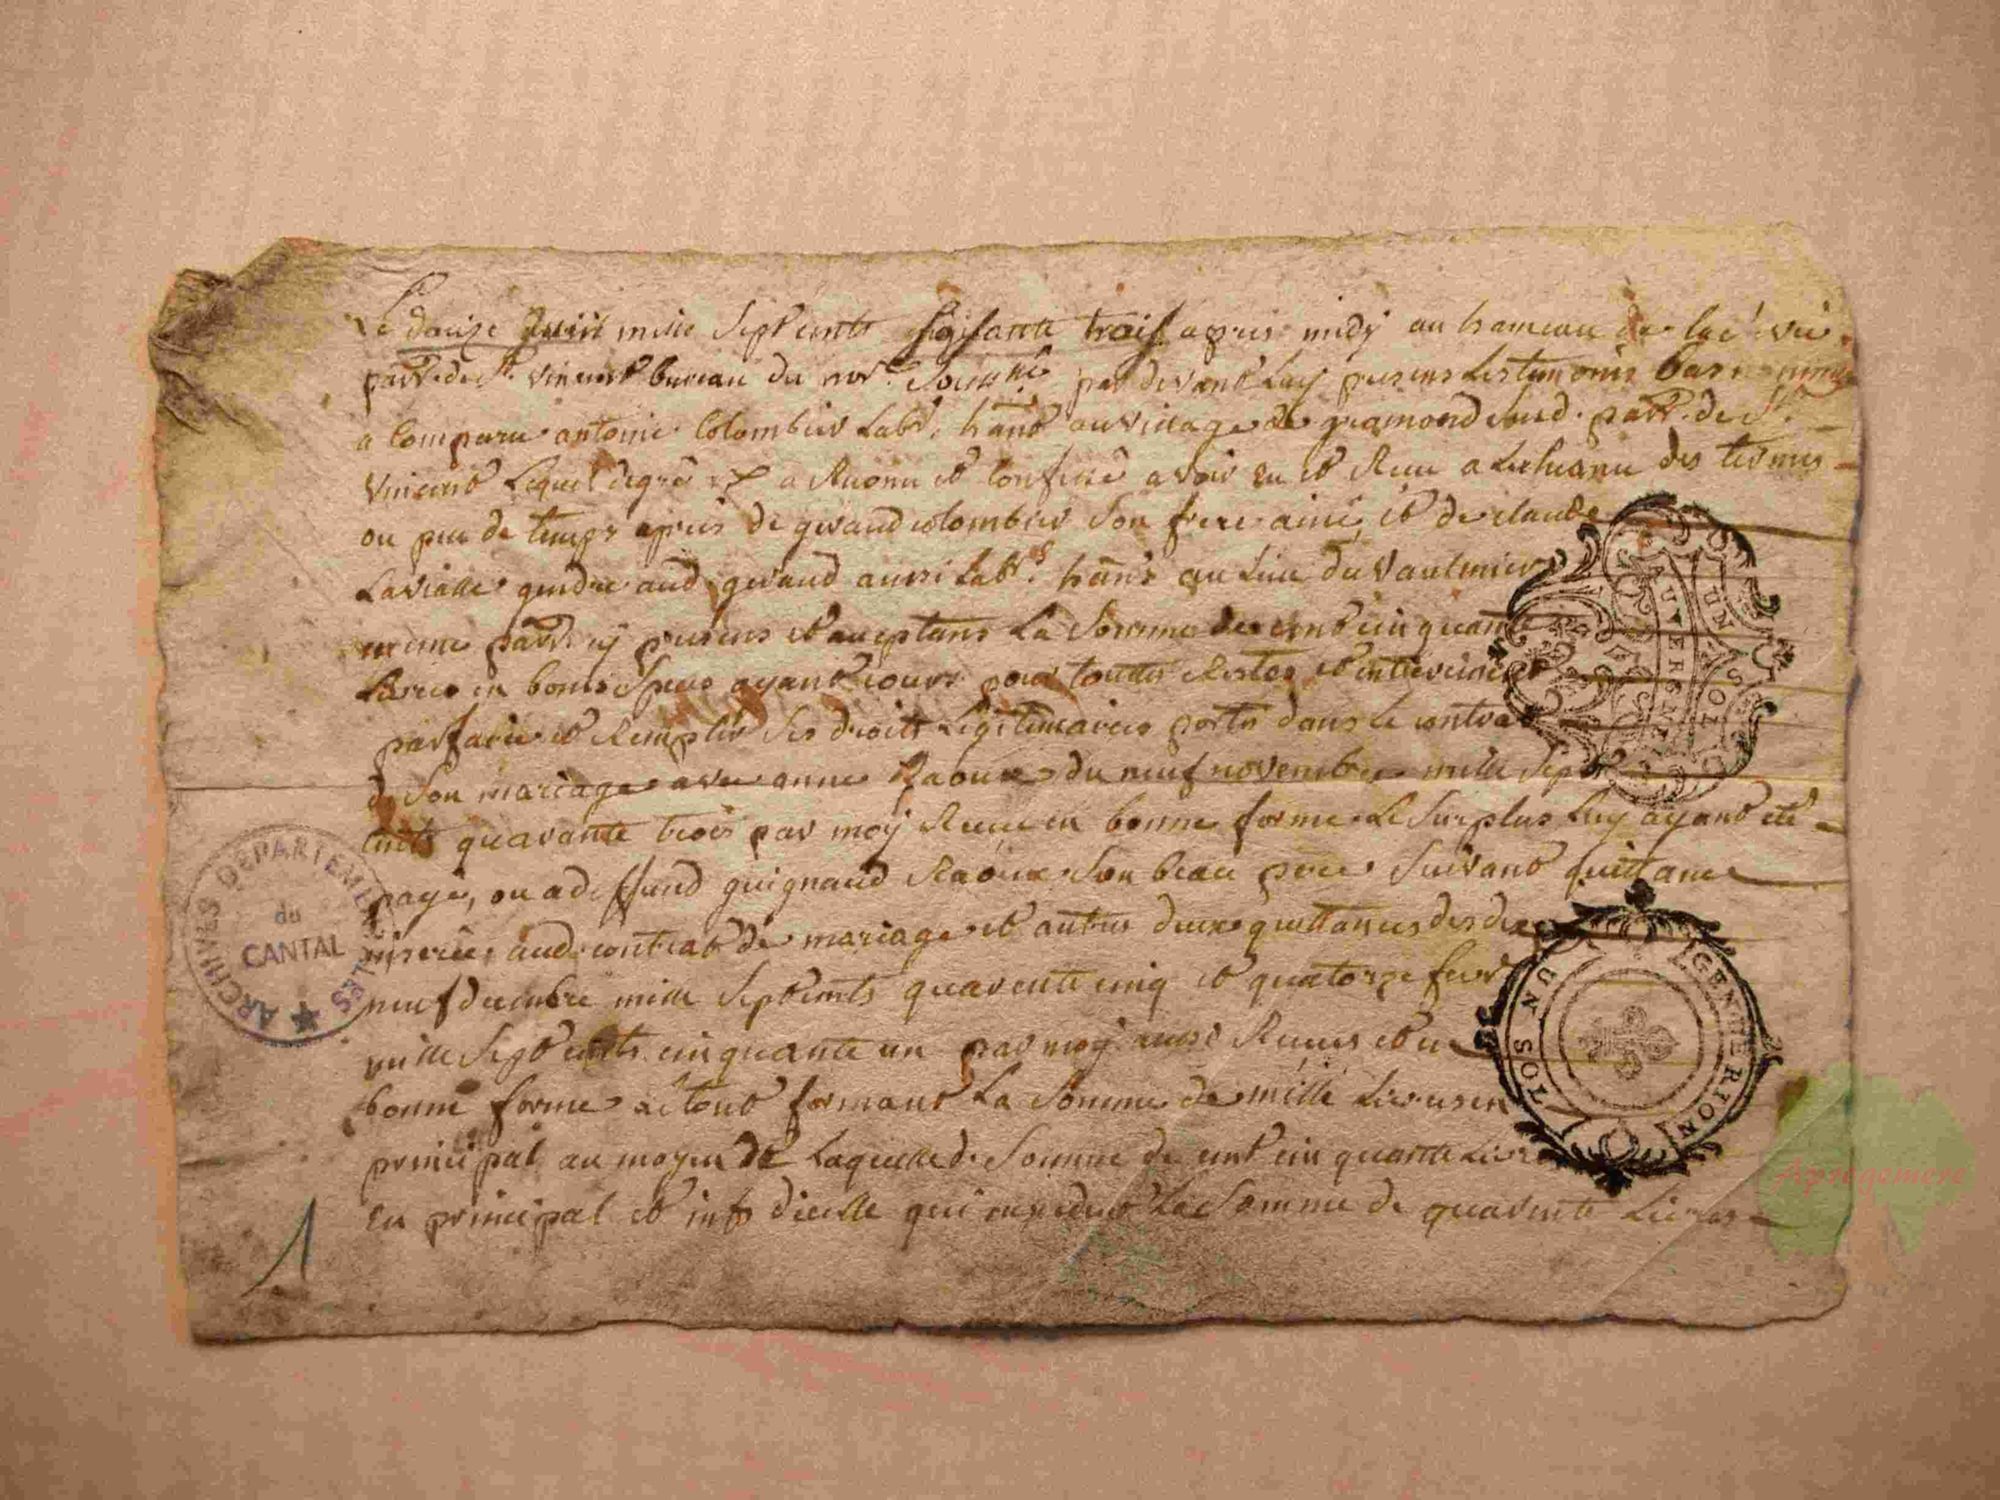 Le douze Juin mille Sept cents soixante trois apres midy au hameau de
parr. de St. vincent bureau du nore. Soussné par devant Luy presens Les temoins bas nommés
a Comparu antoine Colombier Labr. hant au village de gramond parr. de St.
vincent Lequel degré a Reconu et Confessé avoir Eu et Receu a Lecheance des termes
ou peu de temps apres de geraud colombier Son frere ainé et de claude
Lavialle gendre aud. geraud aussi Labrs. hans au Lieu du Vaulmier
meme parr. cy presens et aceptans La Somme de cent cinquante
Livres en bonnes Speces ayant cours pour toutes Restes et entier
parfaire et Remplir Ses droits Legitimaires portés dans Le contrat
de Son mariage avec anne Raoux du neuf novembre mille Sept
cents quarante trois par moy Receu en bonne forme Le Surplus Luy ayant eté
payé, ou a deffund guignaud Raoux Son beau pere Suivant quittance
inserée aud. contrat de mariage et autres deux quittances des dix
neuf decembre mille Sept cents quarente cinq et quatorze fevr
mille Sept cents cinquante un par moy aussi Receues et en
bonne forme Le tout formant La Somme de mille Livres en
principal au moyen de Laquelle d. Somme de cent cinquante Livres
En principal et inpts d'icelle qui excedent La Somme de quarente Livres
ARCHIVES DEPARTEMENTALES
du
CANTAL
UN SOL
AUVERGNE
GEN
UN SOL
1
Aprogemere